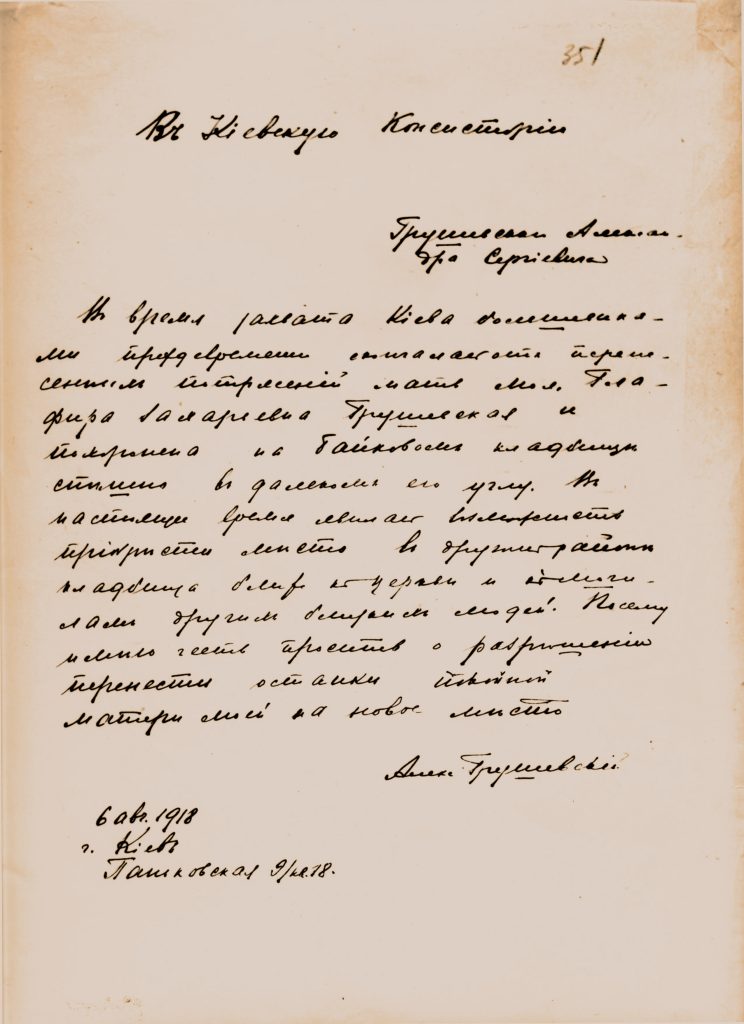 351
Въ Кіевскую Консисторію
Грушевскаго Алексан-
дра Сергіевича
Въ время захвата Кіева большевика-
ми преждевременно скончалась отъ перене-
сенныхъ потрясеній мать моя Гла-
фира Захарьевна Грушевская и
похоронена на Байковомъ кладбищѣ
спѣшно въ далекомъ его углу. Въ
настоящее время явилась возможность
пріобрѣсти мѣсто въ другомъ районѣ
кладбища ближе къ церкви и къ моги-
ламъ другихъ близкихъ людей. Посему
имѣю честь просить о разрѣшеніи
перенести останки покойной
матери моей на новое мѣсто
Алек. Грушевскій
6 авг. 1918
г. Кіевъ
Паньковская 9/кв. 18.